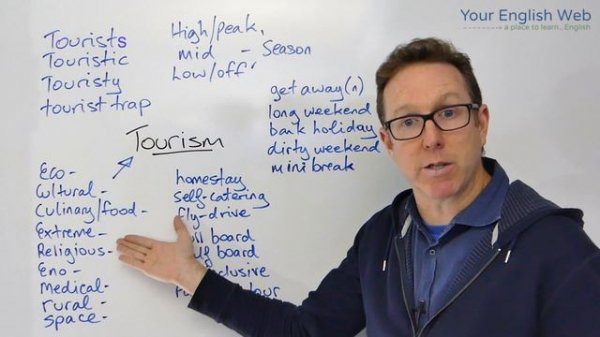 Your English Web
a place to learn.. English
Tourists
Touristic
Touristy
tourist trap
High/peak,
mid - Season
Low/off'
get away(n)
long weekend
bank holiday
dirty weekend
mini break
Tourism
Eco-
Cultural-
Culinary/food-
Extreme-
Religious-
Eno-
Medical-
rural-
space-
homestay
self-catering
fly-drive
board
board